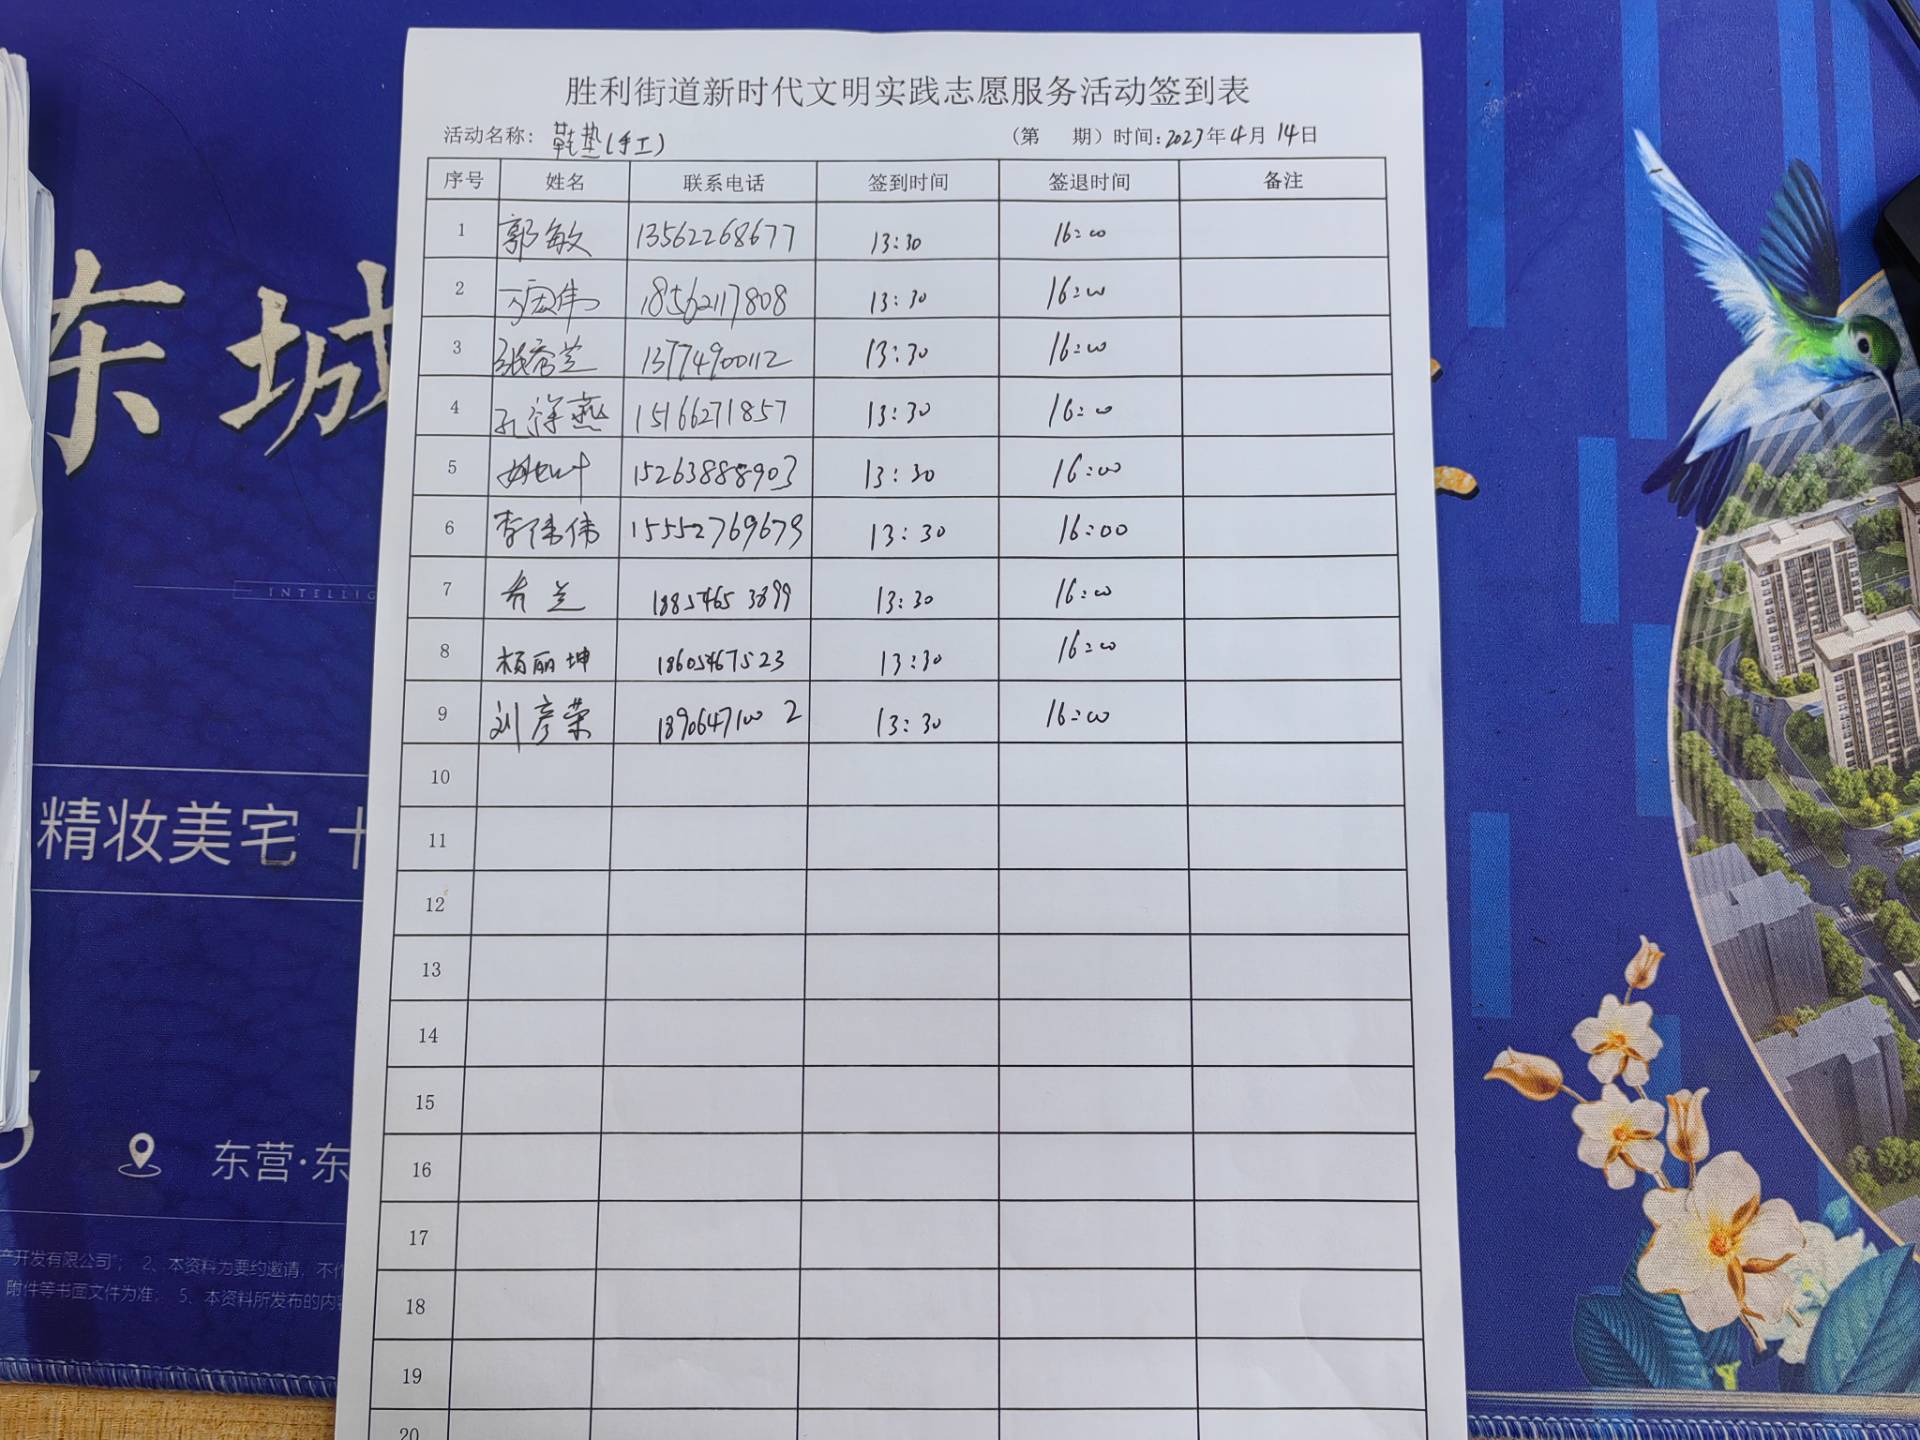 胜利街道新时代文明实践志愿服务活动签到表
活动名称: 鞋垫(手工) (第 期) 时间:2023年4月14日
序号 姓名 联系电话 签到时间 签退时间 备注
1 郭敏 13562268677 13:30 16:00
2 伟 18562117808 13:30 16:00
3 张秀兰 13:30 16:00
4 孔祥燕 15166271857 13:30 16:00
5 姚 15263888903 13:30 16:00
6 李伟 15552769679 13:30 16:00
7 秀兰 18854653899 13:30 16:00
8 杨丽坤 18605467523 13:30 16:00
9 刘彦荣 18906471002 13:30 16:00
10
11
12
13
14
15
16
17
18
19
20
东城
INTELLIG
精妆美宅 十
东营·东
产开发有限公司"; 2、本资料为要约邀请, 不作
附件等书面文件为准; 5、本资料所发布的内容